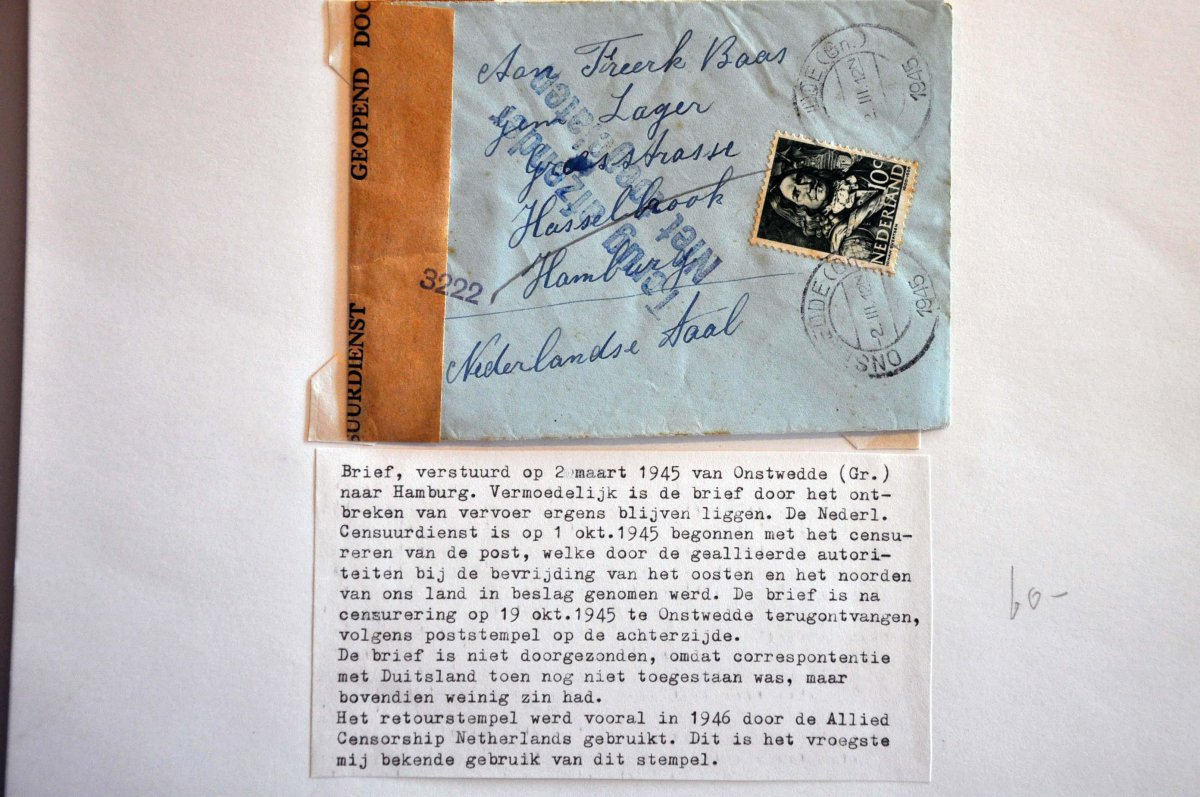 GEOPEND DOO
SUURDIENST
Aan Freerk Baas
gem Lager
Hasselbrook
Hamburg
Nederlandse Taal
3222
Terug afzender
Niet toegelaten
10c
NEDERLAND
1945
ONS
2 III 12N
1945
Brief, verstuurd op 2 maart 1945 van Onstwedde (Gr.)
naar Hamburg. Vermoedelijk is de brief door het ont-
breken van vervoer ergens blijven liggen. De Nederl.
Censuurdienst is op 1 okt.1945 begonnen met het censu-
reren van de post, welke door de geallieerde autori-
teiten bij de bevrijding van het oosten en het noorden
van ons land in beslag genomen werd. De brief is na
censurering op 19 okt.1945 te Onstwedde terugontvangen,
volgens poststempel op de achterzijde.
De brief is niet doorgezonden, omdat correspontentie
met Duitsland toen nog niet toegestaan was, maar
bovendien weinig zin had.
Het retourstempel werd vooral in 1946 door de Allied
Censorship Netherlands gebruikt. Dit is het vroegste
mij bekende gebruik van dit stempel.
60-